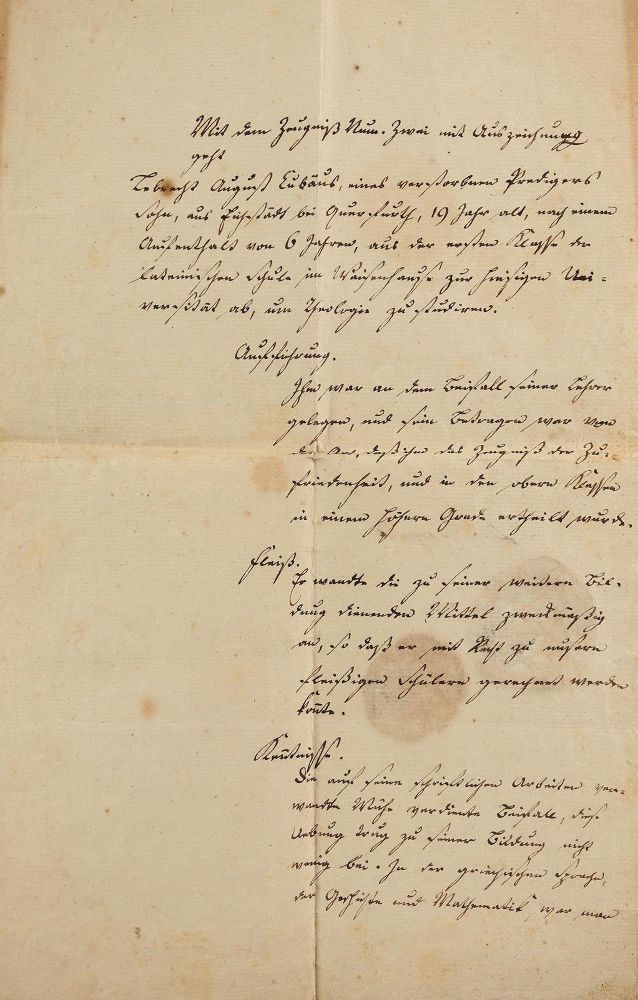 Mit dem Zeugniß Num. Zwei mit Auszeichnung
geht
Lebrecht August Lubäus, eines verstorbnen Predigers
Sohn, aus bei Querfurth, 19 Jahr alt, nach einem
Aufenthalt von 6 Jahren, aus der ersten Klasse der
lateinischen Schule im Waisenhause zur hiesigen Uni-
versität ab, um Theologie zu studiren.
Aufführung.
Ihm war an dem Beifall seiner Lehrer
gelegen, und sein Betragen war von
der Art, daß ihm das Zeugniß der Zu-
friedenheit, und in den obern Klassen
in einem höhern Grade ertheilt wurde.
Fleiß.
Er wandte die zu seiner weitern Bil-
dung dienenden Mittel zweckmäßig
an, so daß er mit Recht zu unsern
fleißigen Schülern gerechnet werden
konte.
Kentnisse.
Die auf seine schriftlichen Arbeiten ver-
wandte Mühe verdiente Beifall, diese
Uebung trug zu seiner Bildung nicht
wenig bei. In der griechischen Sprache,
der Geschichte und Mathematik war man